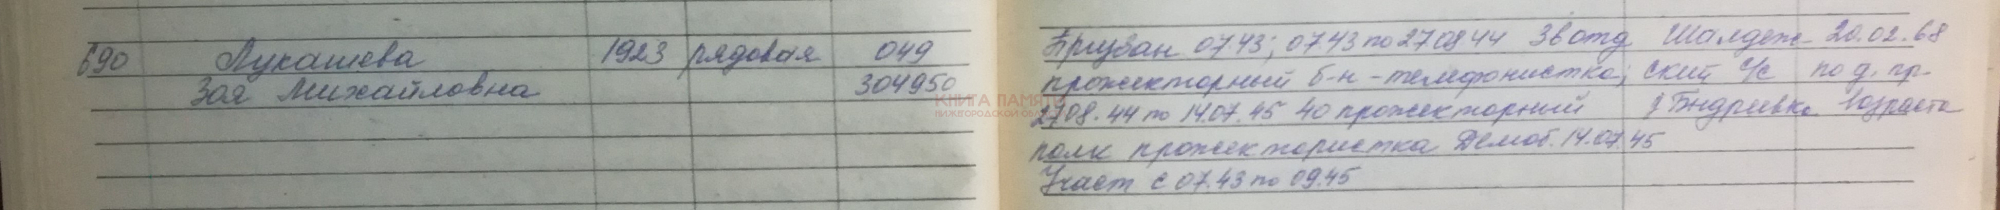 690 Лукашева 1923 рядовая 049
Зоя Михайловна 304950
Призван 07.43; 07.43 по 27.08.44 38 отд. Шалдеж- 20.02.68
прожекторный б-н - телефонистка; ский с/с по д. пр.
27.08.44 по 14.07.45 40 прожекторный возраста
полк прожектористка Демоб. 14.07.45
Участ с 07.43 по 09.45
КНИГА ПАМЯТИ
НИЖЕГОРОДСКОЙ ОБЛАСТИ